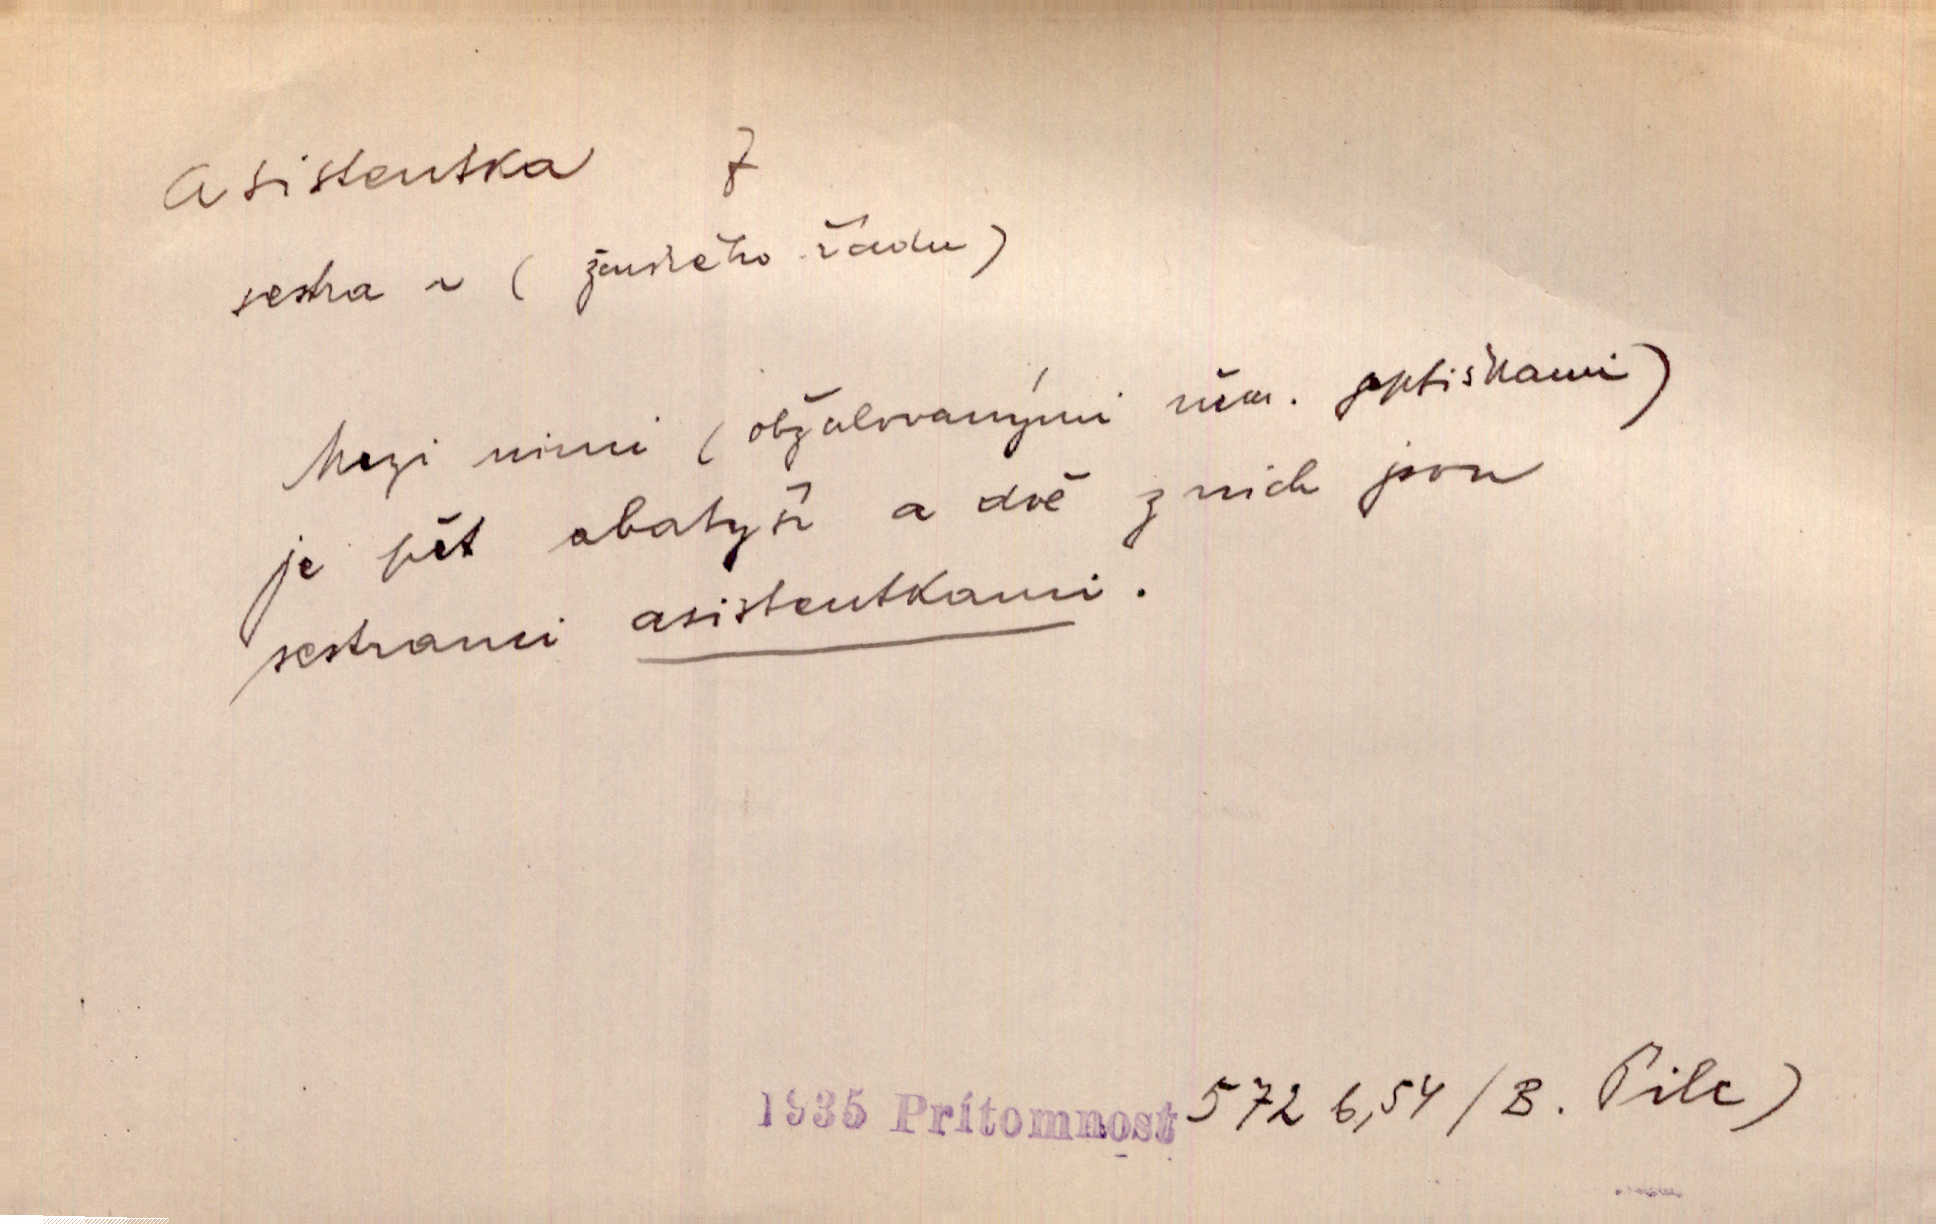 Asistentka f
sestra ~ (ženského řádu)
Mezi nimi (obžalovanými něm. jeptiškami)
je pět abatyší a dvě z nich jsou
sestrami asistentkami.
1935 Prítomnost 572 6,54 (B. Pilc)